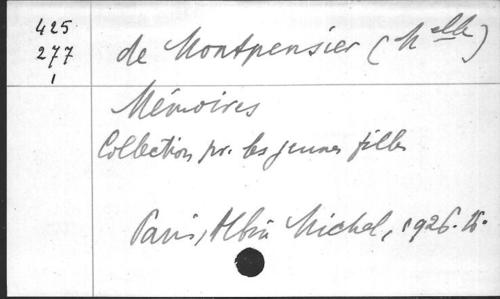 425
277
1
de Montpensier (Melle)
Mémoires
Collection pr. les jeunes filles
Paris, Albin Michel, 1926. 16.